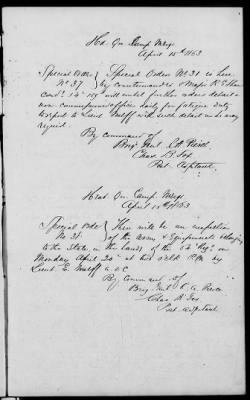 Hd. Qrs Camp Meigs
April 18th 1863
Special Order } Special Order No 31 is here
No 37 } by countermanded & Major
Comdg 54th regt will until further orders detail a
non commissioned officer daily for fatigue duty
report to Lieut with such detail as he may
require.
By command of
Brig Genl R A Peirce
Chas B. Fox
Post Adjutant
Head Qrs Camp Meigs
April 18th 1863
Special Order } There will be an inspection
No 38. } of the Arms & Equipments belonging
to the State in the hands of the 54 Regt on
Monday April 20th at two o'clk P.M. by
Lieut E. A D C
By Command of
Brig Genl R. A. Peirce
Chas B Fox
Post Adjutant